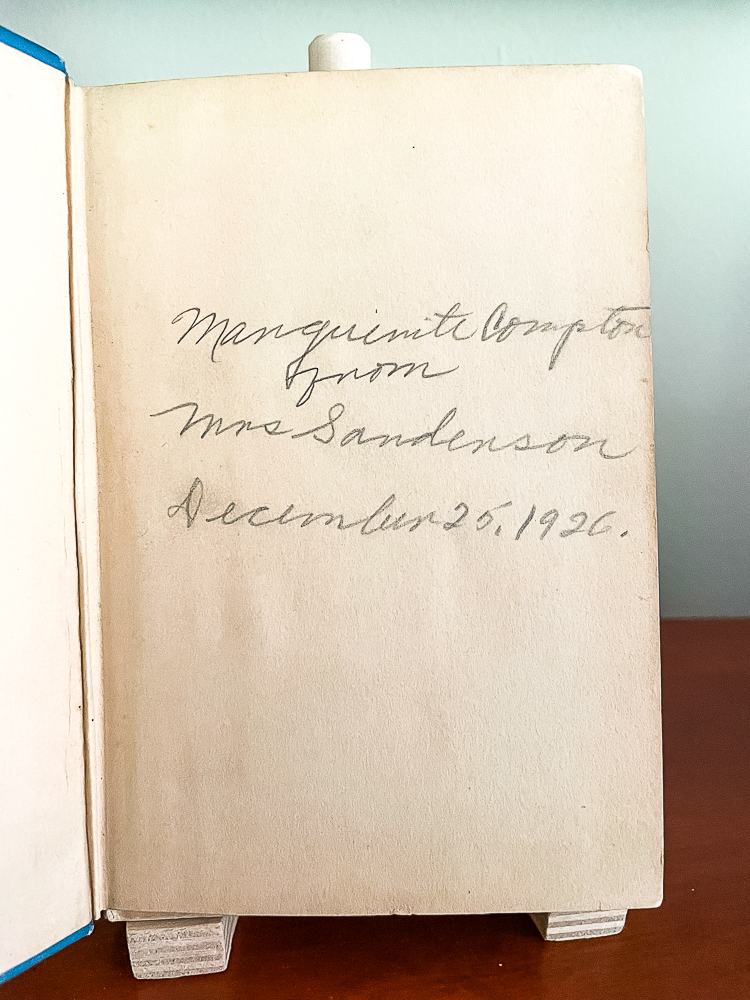 Marguerite Compton
from
Mrs Sanderson
December 25, 1926.